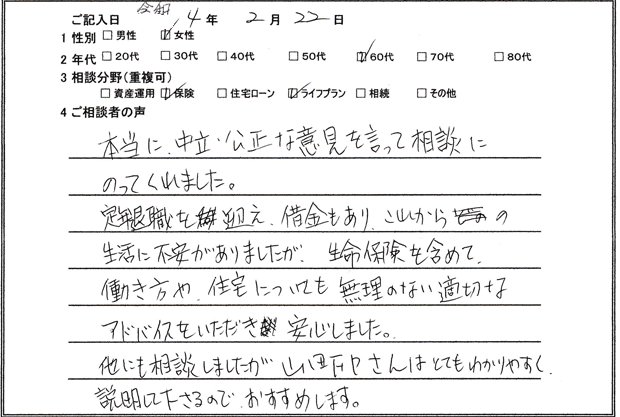 ご記入日 令和 4年 2月 22日
1 性別 □男性 ☑女性
2 年代 □20代 □30代 □40代 □50代 ☑60代 □70代 □80代
3 相談分野(重複可)
□資産運用 ☑保険 □住宅ローン ☑ライフプラン □相続 □その他
4 ご相談者の声
本当に、中立・公正な意見を言って相談に
のってくれました。
定年退職を迎え、借金もあり、これからの
生活に不安がありましたが、生命保険を含めて、
働き方や、住宅についても無理のない適切な
アドバイスをいただき安心しました。
他にも相談しましたが さんはとてもわかりやすく、
説明して下さるので、おすすめします。